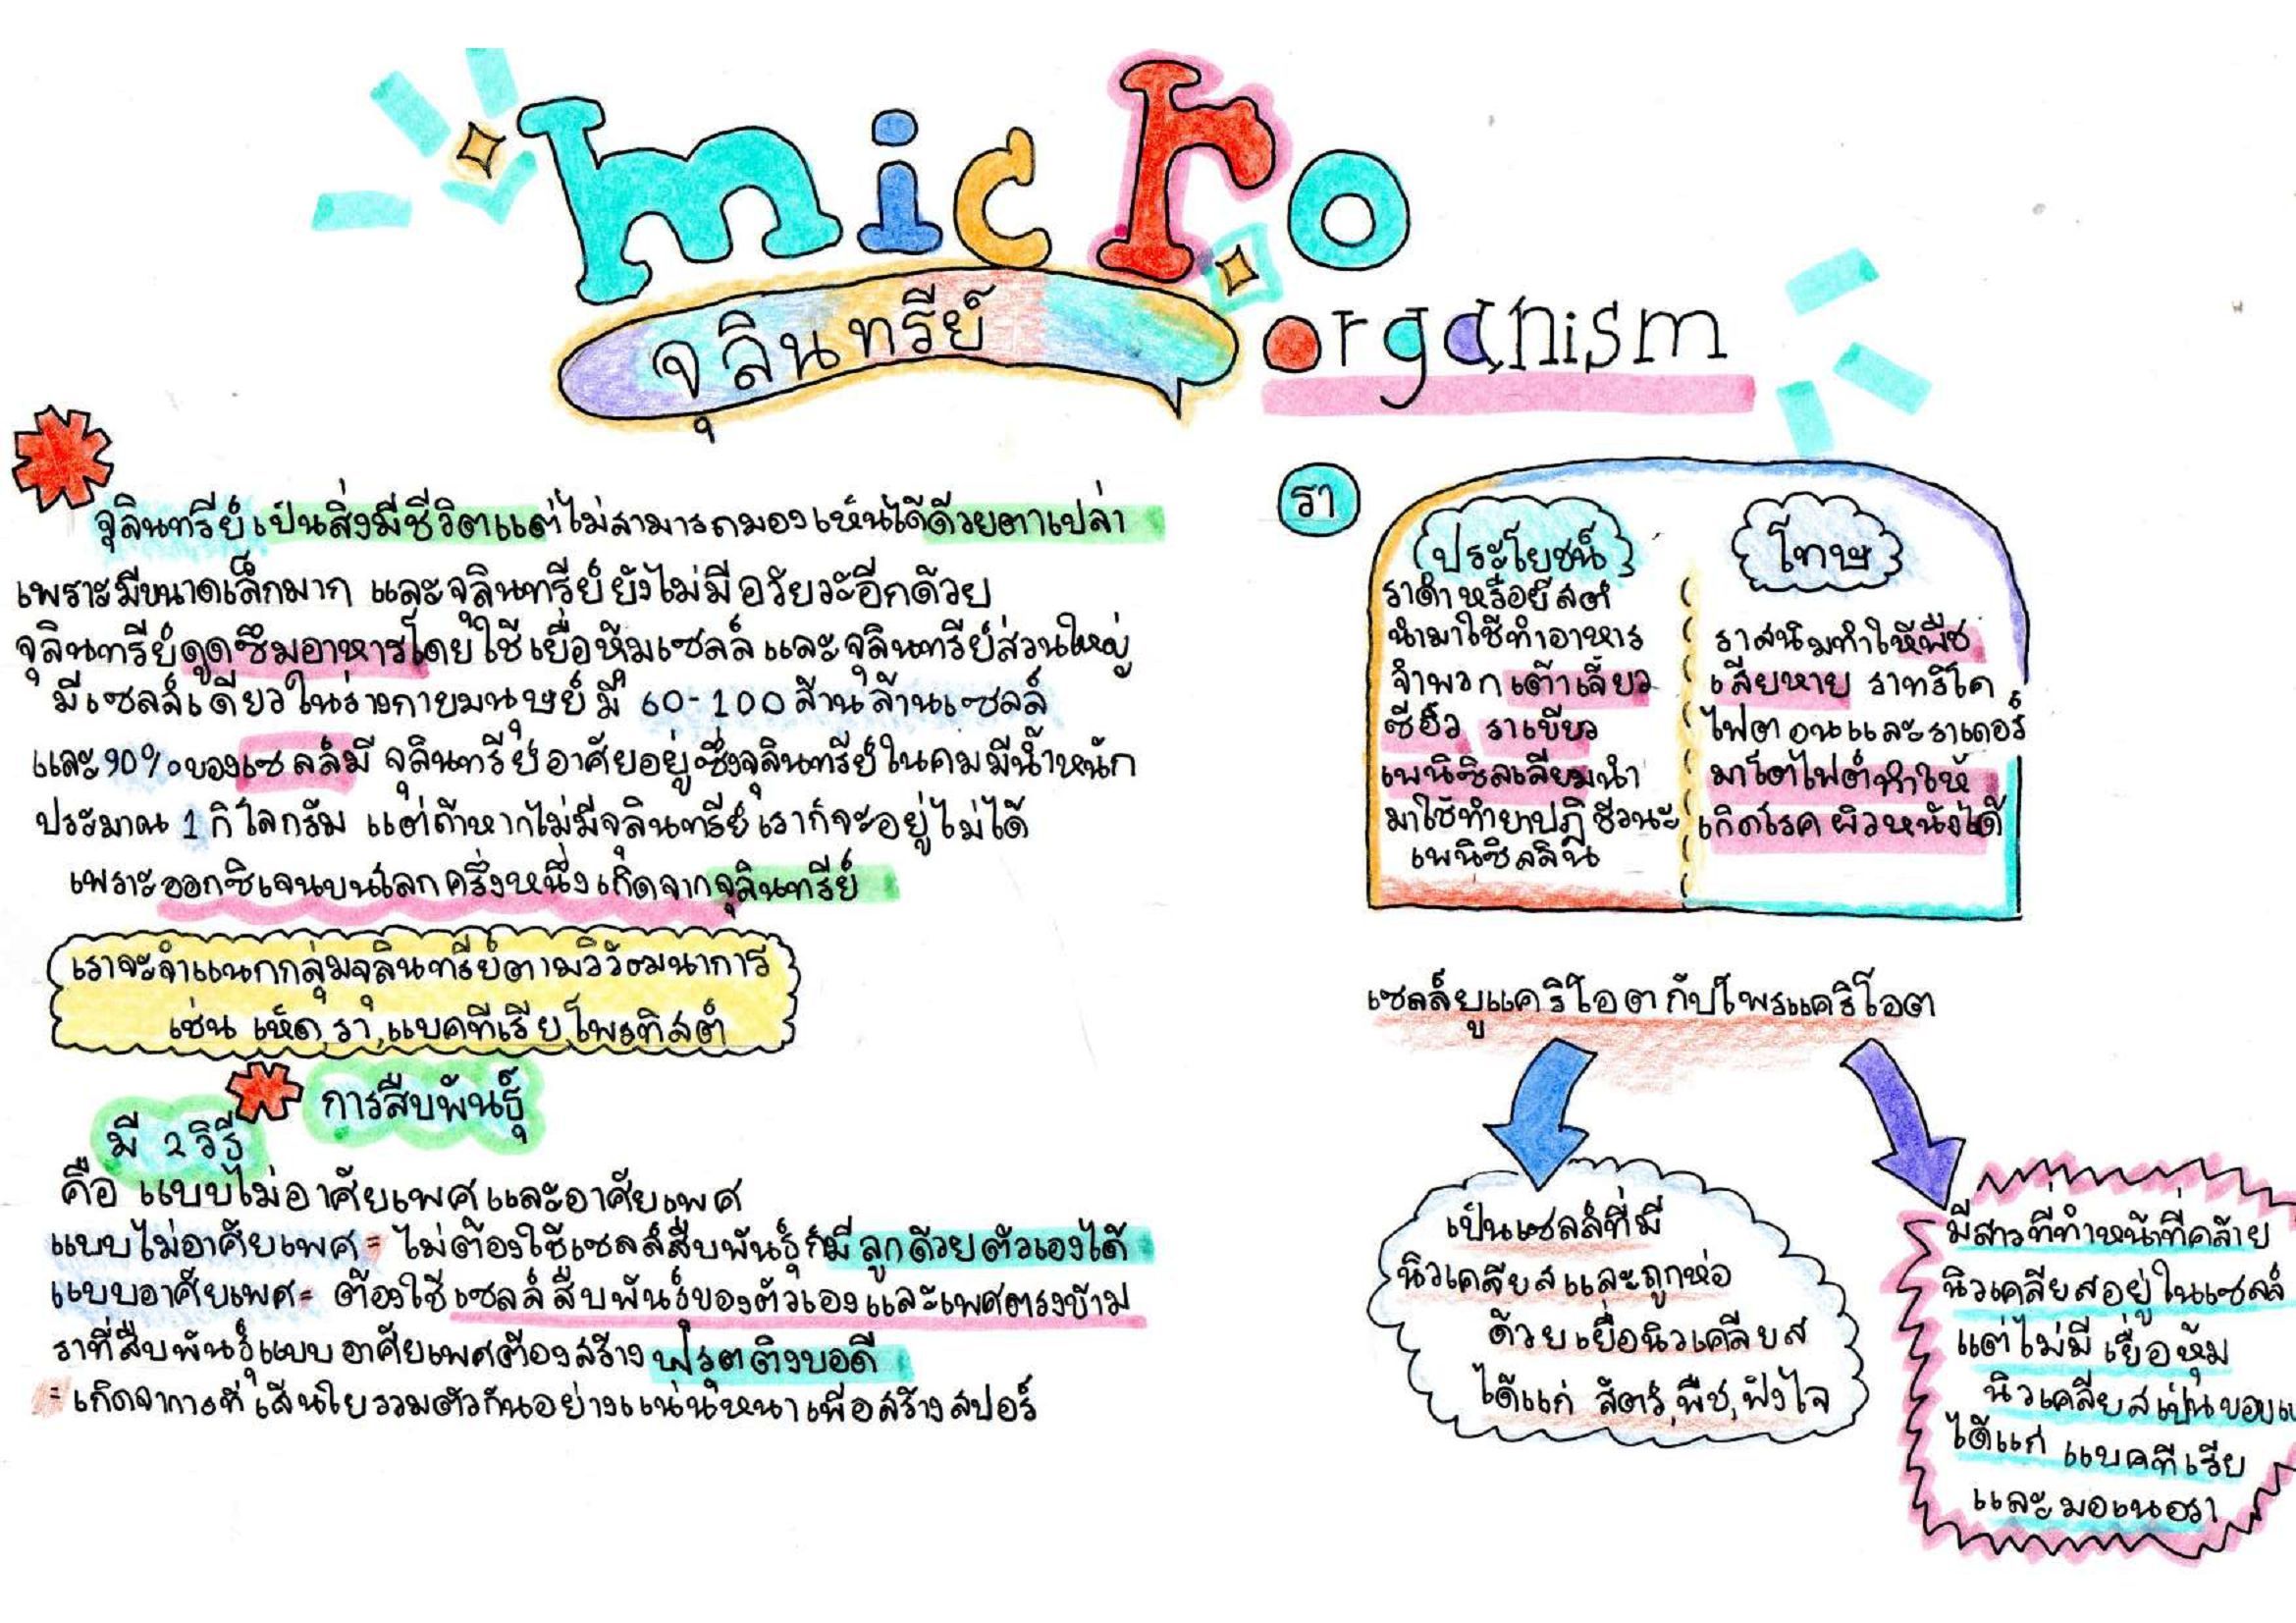 micro
จุลินทรีย์
organism
จุลินทรีย์เป็นสิ่งมีชีวิตแต่ไม่สามารถมองเห็นได้ด้วยตาเปล่า
เพราะมีขนาดเล็กมาก และจุลินทรีย์ยังไม่มีอวัยวะอีกด้วย
จุลินทรีย์ดูดซึมอาหารโดยใช้เยื่อหุ้มเซลล์ และจุลินทรีย์ส่วนใหญ่
มีเซลล์เดียวในร่างกายมนุษย์มี 60-100 ล้านล้านเซลล์
และ 90% ของเซลล์มี จุลินทรีย์อาศัยอยู่ซึ่งจุลินทรีย์ในคนมีน้ำหนัก
ประมาณ 1 กิโลกรัม แต่ถ้าหากไม่มีจุลินทรีย์เราก็จะอยู่ไม่ได้
เพราะออกซิเจนบนโลกครึ่งหนึ่งเกิดจากจุลินทรีย์
เราจะจำแนกกลุ่มจุลินทรีย์ตามวิวัฒนาการ
เช่น เห็ด,รา,แบคทีเรีย,โพรทิสต์
การสืบพันธุ์
มี 2 วิธี
คือ แบบไม่อาศัยเพศและอาศัยเพศ
แบบไม่อาศัยเพศ = ไม่ต้องใช้เซลล์สืบพันธุ์ก็มีลูกด้วยตัวเองได้
แบบอาศัยเพศ = ต้องใช้เซลล์สืบพันธุ์ของตัวเองและเพศตรงข้าม
ราที่สืบพันธุ์แบบอาศัยเพศต้องสร้าง ฟรุตติงบอดี
= เกิดจาการที่เส้นใยรวมตัวกันอย่างแน่นหนาเพื่อสร้างสปอร์
รา
ประโยชน์
ราดำหรือยีสต์
นำมาใช้ทำอาหาร
จำพวกเต้าเจี้ยว
ซีอิ๊ว ราเขียว
เพนิซิลเลียมนำ
มาใช้ทำยาปฏิชีวนะ
เพนิซิลลิน
โทษ
ราสนิมทำให้พืช
เสียหาย ราทริโค
ไฟตอนและราเดอร์
มาโตไฟต์ทำให้
เกิดโรคผิวหนังได้
เซลล์ยูแคริโอตกับโพรแคริโอต
เป็นเซลล์ที่มี
นิวเคลียสและถูกห่อ
ด้วยเยื่อนิวเคลียส
ได้แก่ สัตว์,พืช,ฟังไจ
มีสารที่ทำหน้าที่คล้าย
นิวเคลียสอยู่ในเซลล์
แต่ไม่มีเยื่อหุ้ม
นิวเคลียสเป็น
ได้แก่ แบคทีเรีย
และมอเนอรา